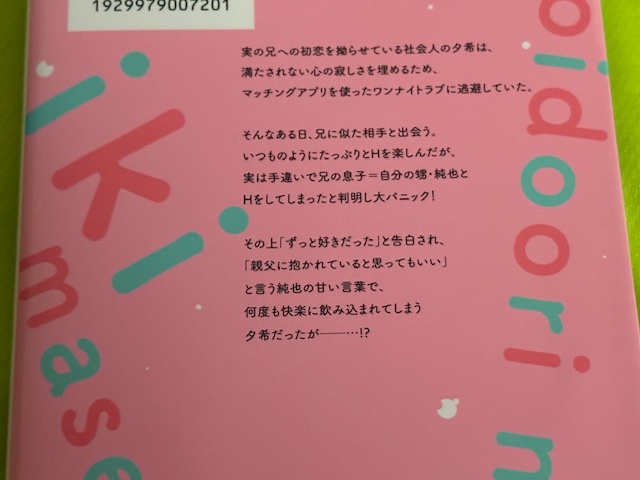 1929979007201
実の兄への初恋を拗らせている社会人の夕希は、
満たされない心の寂しさを埋めるため、
マッチングアプリを使ったワンナイトラブに逃避していた。
そんなある日、兄に似た相手と出会う。
いつものようにたっぷりとHを楽しんだが、
実は手違いで兄の息子＝自分の甥・純也と
Hをしてしまったと判明し大パニック!
その上「ずっと好きだった」と告白され、
「親父に抱かれていると思ってもいい」
と言う純也の甘い言葉で、
何度も快楽に飲み込まれてしまう
夕希だったが———…!?
iKi
mase
oidoori n